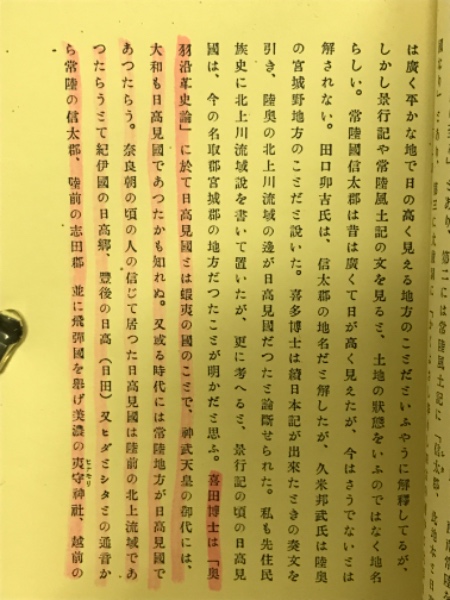 は廣く平かな地で日の高く見える地方のことだといふやうに解釋してるが、
しかし景行記や常陸風土記の文を見ると、土地の狀態をいふのではなく地名
らしい。常陸國信太郡は昔は廣くて日が高く見えたが、今はさうでないとは
解されない。田口卯吉氏は、信太郡の地名だと解したが、久米邦武氏は陸奥
の宮城野地方のことだと說いた。喜多博士は續日本記が出來たときの奏文を
引き、陸奥の北上川流域の邊が日高見國だつたと論斷せられた。私も先住民
族史に北上川流域說を書いて置いたが、更に考へると、景行記の頃の日高見
國は、今の名取郡宮城郡の地方だつたことが明かだと思ふ。喜田博士は「奥
羽沿革史論」に於て日高見國とは蝦夷の國のことで、神武天皇の御代には、
大和も日高見國であつたかも知れぬ。又或る時代には常陸地方が日高見國で
あつたらう。奈良朝の頃の人の信じて居つた日高見國は陸前の北上流域であ
つたらうとて紀伊國の日高鄕、豐後の日高（日田）又ヒダとシタとの通音か
ら常陸の信太郡、陸前の志田郡　並に飛彈國を擧げ美濃の夷守神社、越前の